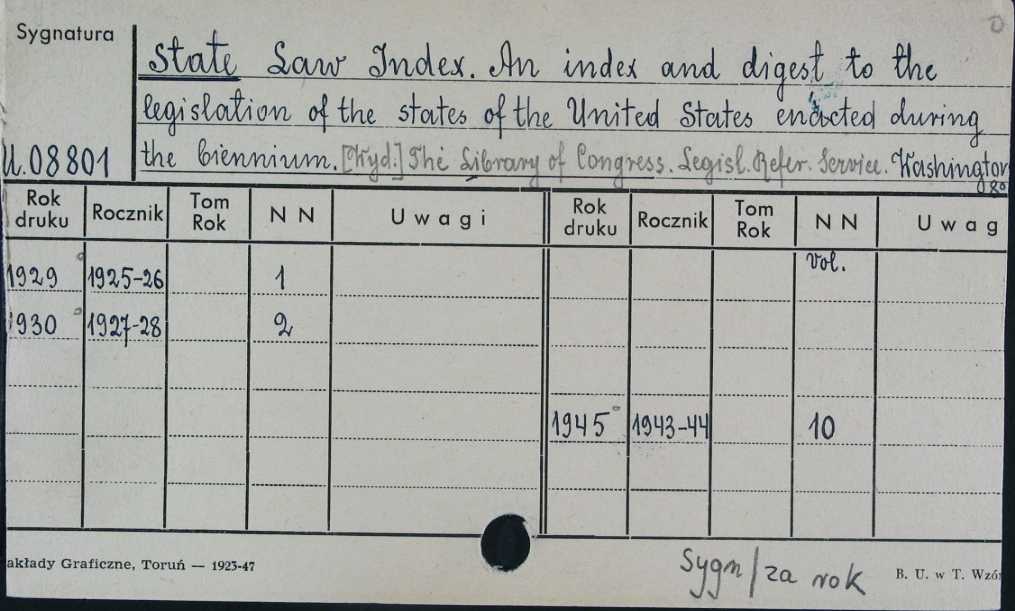 Sygnatura
State Law Index. An index and digest to the
legislation of the states of the United States enacted during
U.08801 the biennium. [Wyd.] The Library of Congress. Legisl. Refer. Service. Washington
8º
Rok druku Rocznik Tom Rok N N Uwagi Rok druku Rocznik Tom Rok N N Uwag
vol.
1929 1925-26 1
1930 1927-28 2
1945 1943-44 10
akłady Graficzne, Toruń — 1923-47
Sygn/za rok
B. U. w T. Wzór